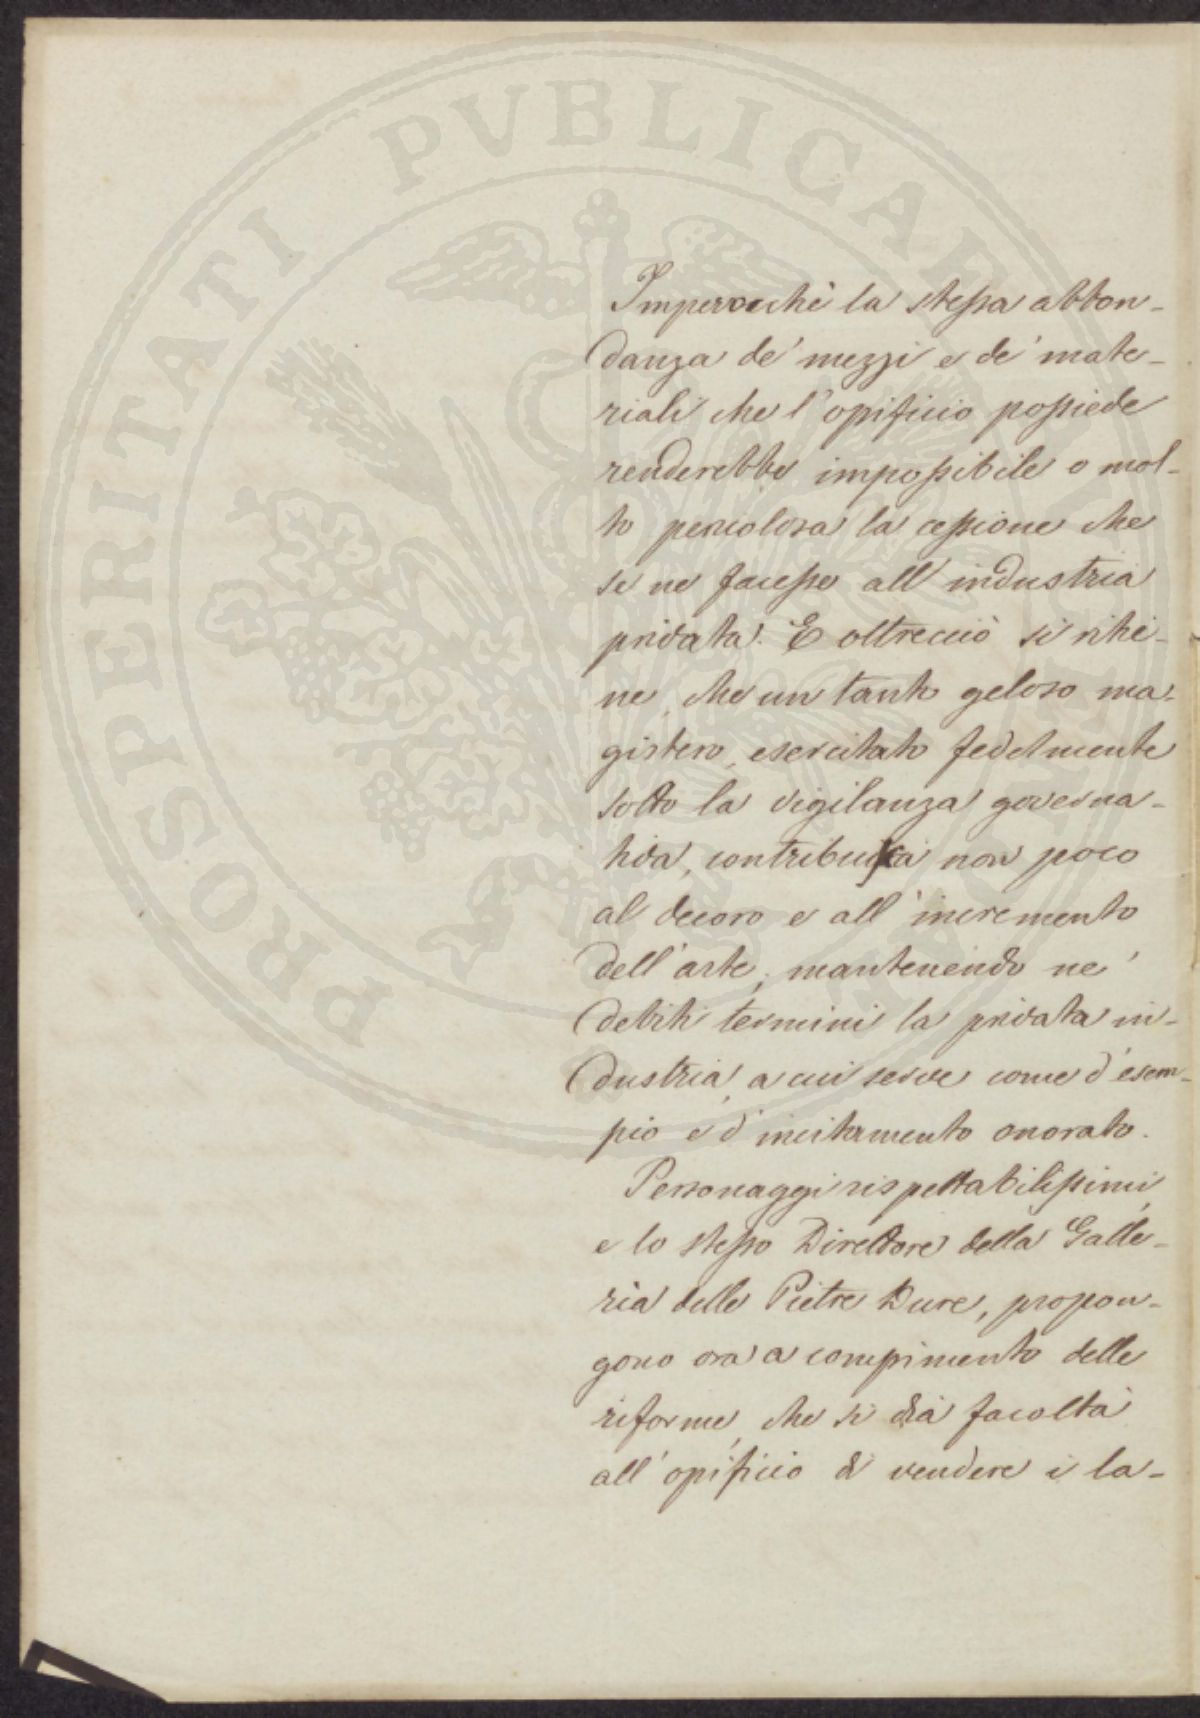 PROSPERITATI PVBLICAE
Imperocchè la stessa abbon-
danza de' mezzi e de' mate-
riali che l'opificio possiede
renderebbe impossibile o mol-
to pericolosa la cessione che
se ne facesse all'industria
privata. E oltrecciò si ritie-
ne, che un tanto geloso ma-
gistero, esercitato fedelmente
sotto la vigilanza governa-
tiva, contribuisca non poco
al decoro e all'incremento
dell'arte, mantenendo ne'
debiti termini la privata in-
dustria, a cui serve come d'esem-
pio e d'incitamento onorato.
Personaggi rispettabilissimi,
e lo stesso Direttore della Galle-
ria delle Pietre Dure, propon-
gono ora a compimento delle
riforme, che si dia facoltà
all'opificio di vendere i la-